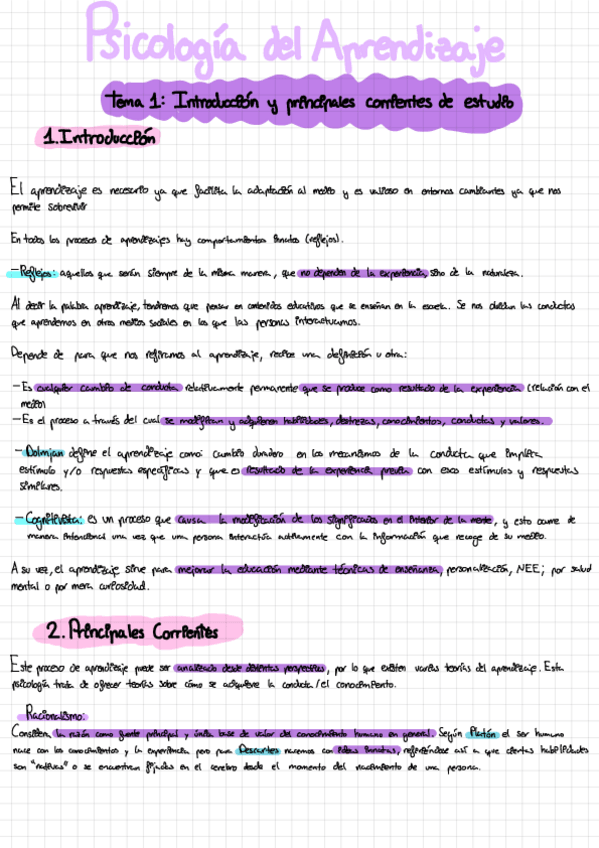 Psicología del Aprendizaje
Tema 1: Introducción y principales corrientes de estudio
1. Introducción
El aprendizaje es necesario ya que facilita la adaptación al medio y es valioso en entornos cambiantes ya que nos
permite sobrevivir
En todos los procesos de aprendizajes hay comportamientos innatos (reflejos).
- Reflejos: aquellos que serán siempre de la misma manera, que no dependen de la experiencia, sino de la naturaleza.
Al decir la palabra aprendizaje, tendremos que pensar en contenidos educativos que se enseñan en la escuela. Se nos olvidan las conductas
que aprendemos en otros medios sociales en los que las personas interactuamos.
Depende de para que nos refiramos al aprendizaje, recibe una definición u otra:
- Es cualquier cambio de conducta relativamente permanente que se produce como resultado de la experiencia (relación con el
medio)
- Es el proceso a través del cual se modifican y adquieren habilidades, destrezas, conocimientos, conductas y valores.
- Domjan define el aprendizaje como: cambio duradero en los mecanismos de la conducta que implica
estímulo y/o respuestas específicas y que es resultado de la experiencia previa con esos estímulos y respuestas
similares.
- Cognitivista: es un proceso que causa la modificación de los significados en el interior de la mente, y esto ocurre de
manera intencional una vez que una persona interactúa activamente con la información que recoge de su medio.
A su vez, el aprendizaje sirve para mejorar la educación mediante técnicas de enseñanza, personalización, NEE; por salud
mental o por mera curiosidad.
2. Principales Corrientes
Este proceso de aprendizaje puede ser analizado desde distintas perspectivas, por lo que existen varias teorías del aprendizaje. Esta
psicología trata de ofrecer teorías sobre cómo se adquiere la conducta/el conocimiento.
Racionalismo:
Considera la razón como fuente principal y única base de valor del conocimiento humano en general. Según Platón el ser humano
nace con los conocimientos y la experiencia pero para Descartes nacemos con ideas innatas, refiriéndose así a que ciertas habilidades
son "nativas" o se encuentran fijadas en el cerebro desde el momento del nacimiento de una persona.